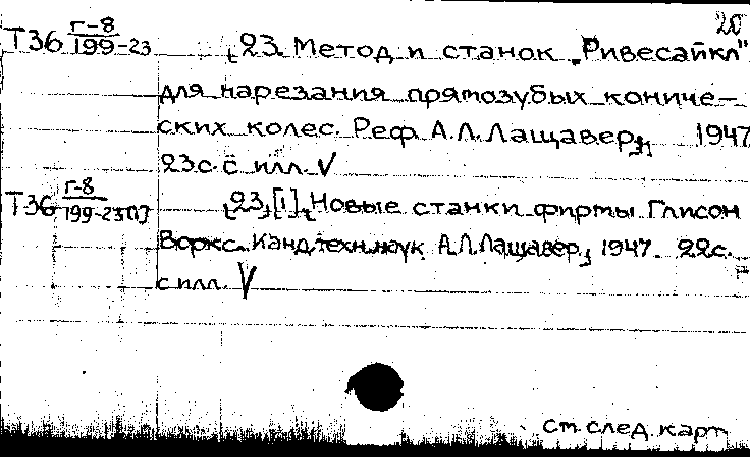 20
Т36 Г-8/199-23 23. Метод и станок „Ривесайкл"
для нарезания прямозубых кониче-
ских колес. Реф. А.Л. Лащавер, 1947
23 с. с илл. V
Т36 Г-8/199-23[1] 23,[1]. Новые станки фирмы Глисон
Воркс. Канд. техн. наук А.Л. Лащавер, 1947. 22 с.
с илл. V
см. след. карт